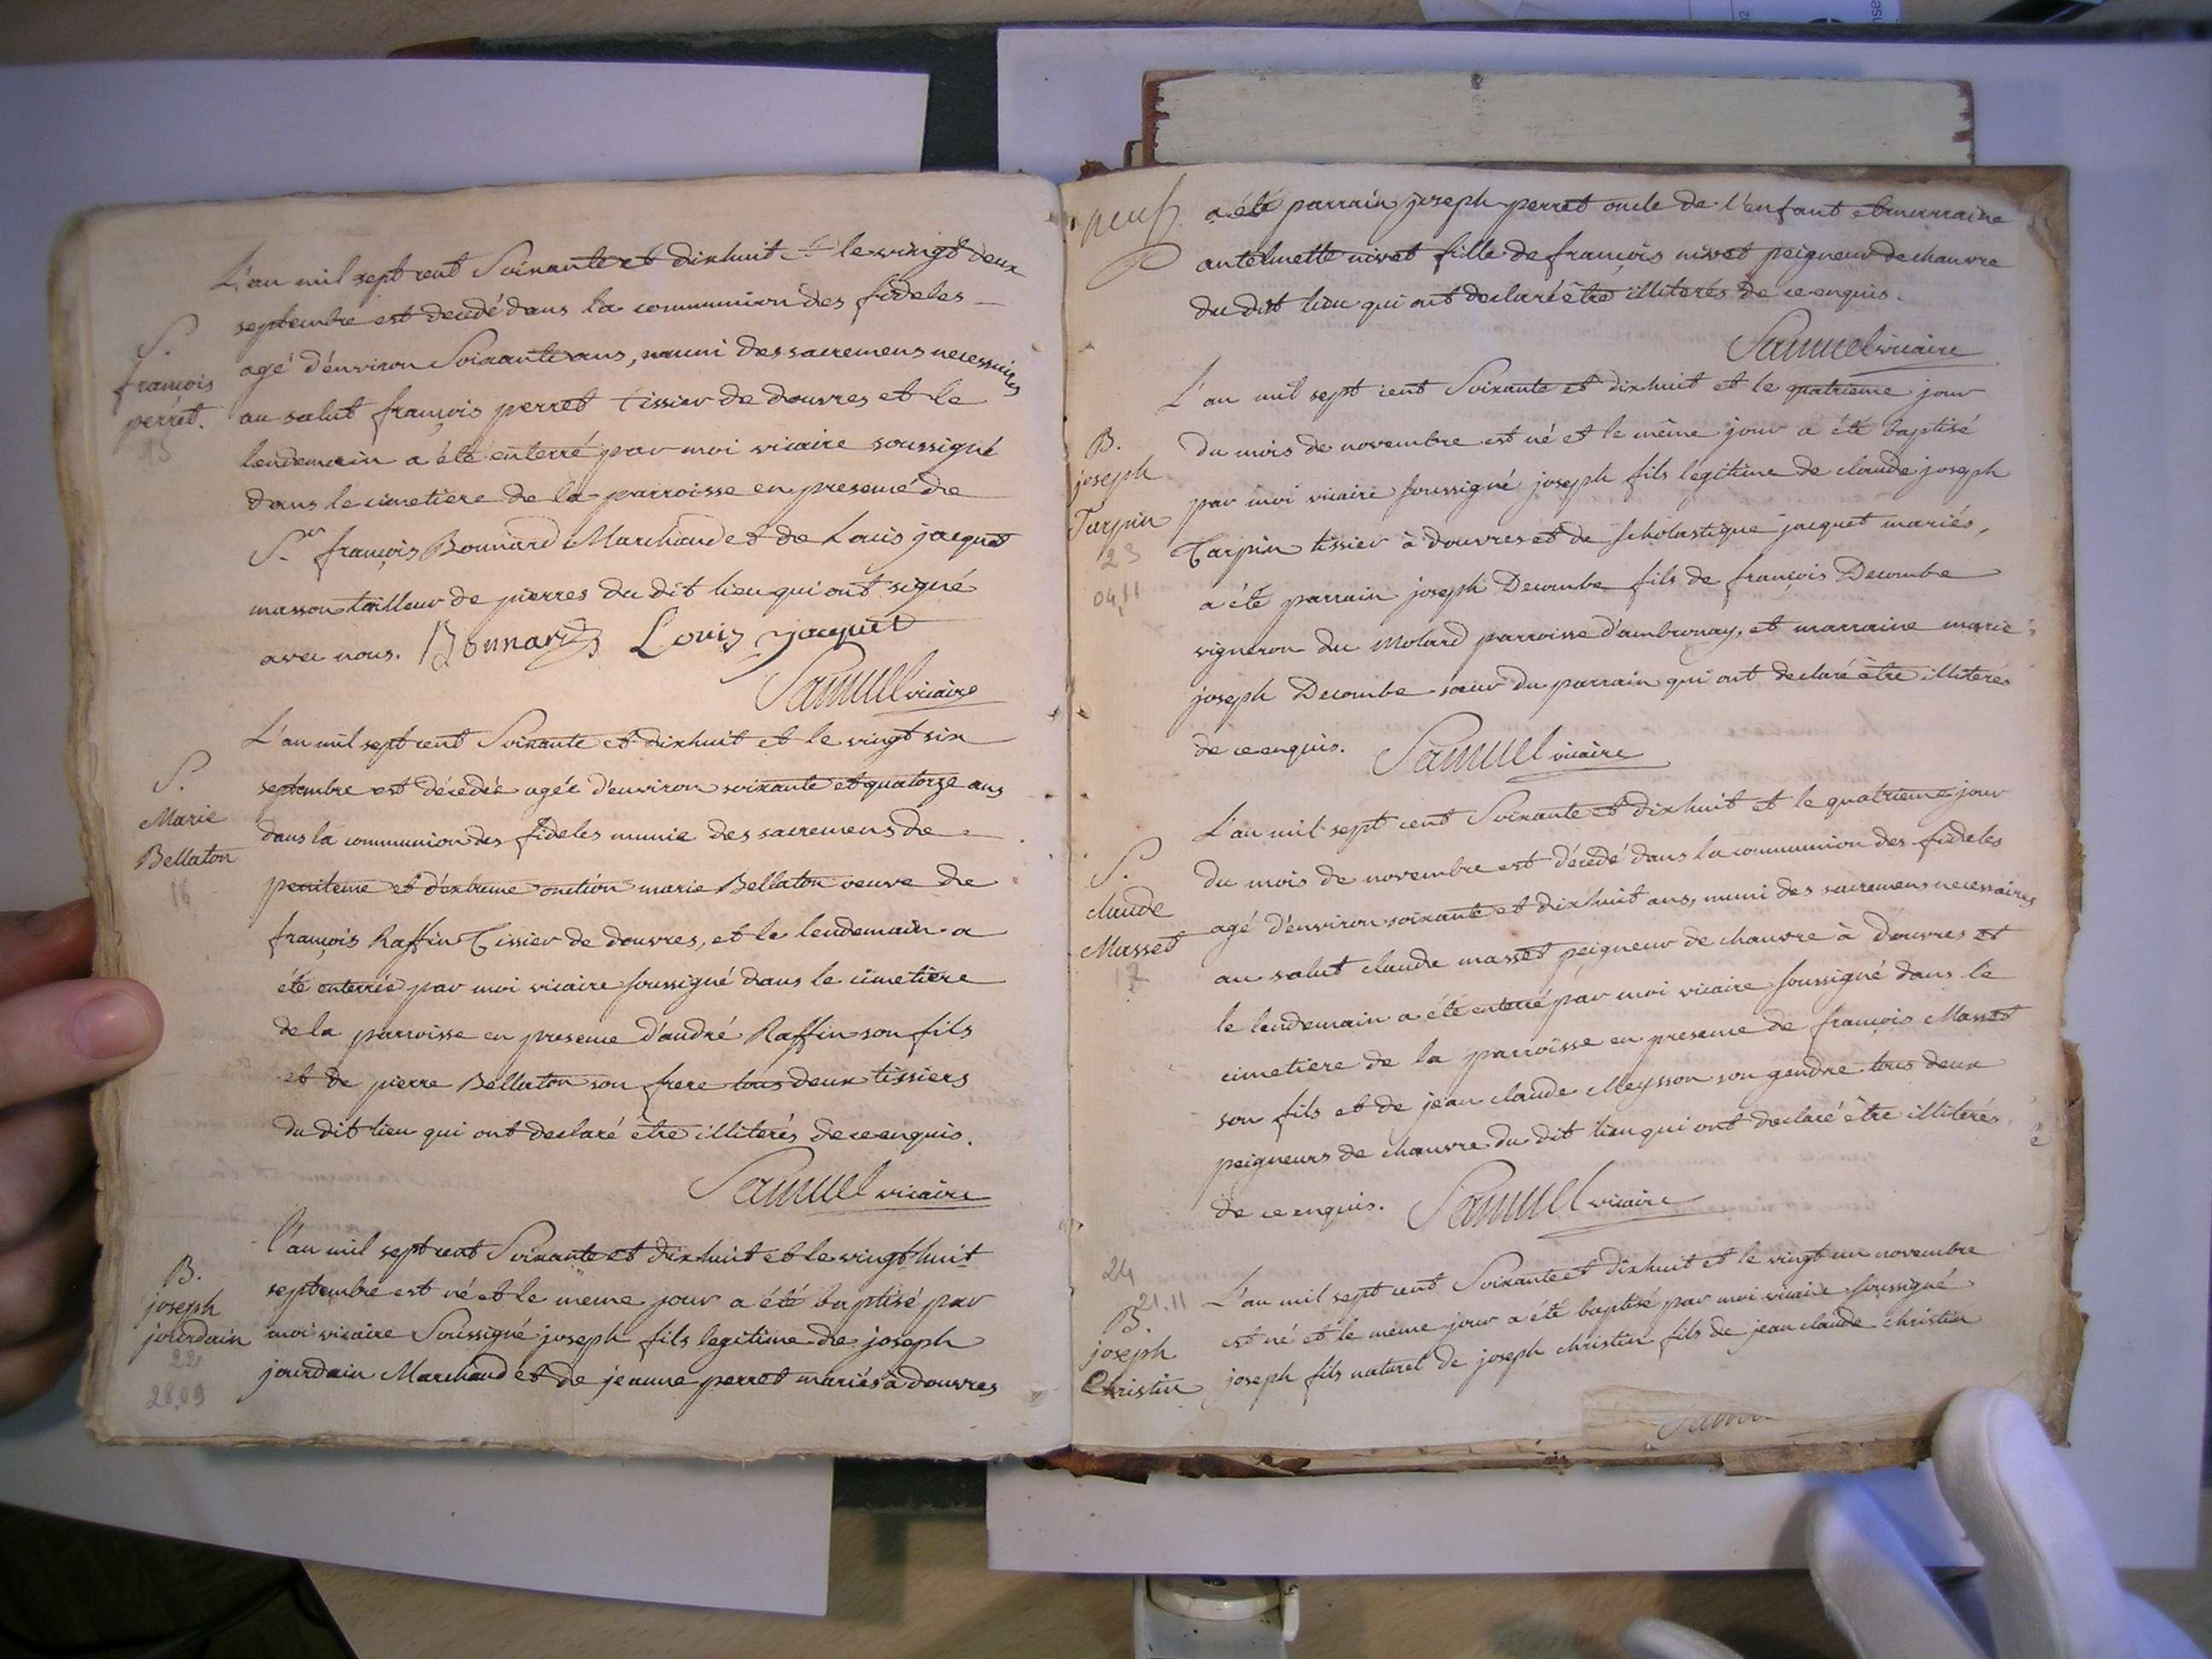 L'an mil sept cent Soixante et dixhuit et le vingt deux
septembre est decedé dans la communion des fideles
S.
françois
perret.
15
agé d'environ Soixante ans, muni des sacremens necessaires
au salut françois perret tissier de douvres et le
lendemain a été enterré par moi vicaire soussigné
dans le cimetiere de la parroisse en presence de
Sr. françois Bonnard Marchand et de Louis jacquet
masson tailleur de pierres du dit lieu qui ont signé
avec nous. Bonnard Louis jacquet
Samuel vicaire
L'an mil sept cent Soixante et dixhuit et le vingt six
S.
Marie
Bellaton
16
septembre est décedée agée d'environ soixante et quatorze ans
dans la communion des fideles munie des sacremens de
penitence et d'extreme onction marie Bellaton veuve de
françois Raffin Tissier de douvres, et le lendemain a
été enterrée par moi vicaire soussigné dans le cimetiere
de la parroisse en presence d'andré Raffin son fils
et de pierre Bellaton son frere tous deux tissiers
du dit lieu qui ont declaré etre illiterés de ce enquis.
Samuel vicaire
l'an mil sept cent Soixante et dixhuit et le vingt huit
B.
joseph
jourdain
22
28.09
septembre est né et le meme jour a été baptisé par
moi vicaire Soussigné joseph fils legitime de joseph
jourdain Marchand et de jeanne perret mariés à douvres
neuf
a été parrain joseph perret oncle de l'enfant et marraine
antelmette nivet fille de françois nivet peigneur de chanvre
du dit lieu qui ont declaré être illiterés de ce enquis.
Samuel vicaire
L'an mil sept cent Soixante et dixhuit et le quatrieme jour
B.
joseph
Tarpin
23
04.11
du mois de novembre est né et le même jour a été baptisé
par moi vicaire soussigné joseph fils legitime de claude joseph
Tarpin tissier à douvres et de scholastique jacquet mariés,
a été parrain joseph Decombe fils de françois Decombe
vigneron du Molard parroisse d'ambronay, et marraine marie
joseph Decombe soeur du parrain qui ont declaré être illiterés
de ce enquis. Samuel vicaire
L'an mil sept cent Soixante et dixhuit et le quatrieme jour
S.
claude
Masset
17
du mois de novembre est décedé dans la communion des fideles
agé d'environ soixante et dixhuit ans, muni des sacremens necessaires
au salut claude masset peigneur de chanvre à douvres et
le lendemain a été enterré par moi vicaire soussigné dans le
cimetiere de la parroisse en presence de françois Masset
son fils et de jean claude Meysson son gendre tous deux
peigneurs de chanvre du dit lieu qui ont declaré être illiterés
de ce enquis. Samuel vicaire
24
21.11
B.
joseph
Christin
L'an mil sept cent Soixante et dixhuit et le vingt un novembre
est né et le meme jour a été baptisé par moi vicaire soussigné
joseph fils naturel de joseph christin fils de jean claude christin